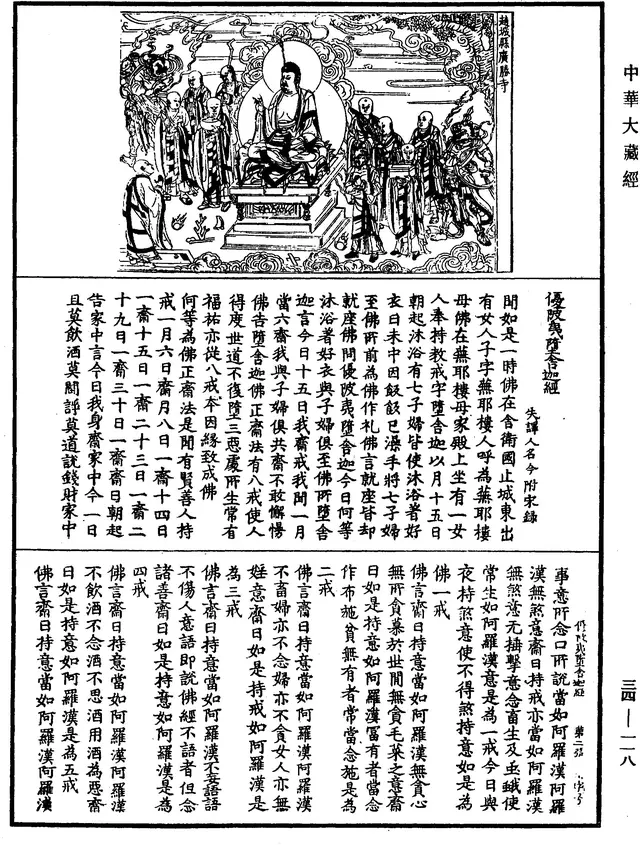 中華大藏經
趙城縣廣勝寺
優陂夷墮舍迦經
失譯人名今附宋錄
聞如是一時佛在舍衛國止城東出
有女人子字蕪耶樓人呼為蕪耶樓
母佛在蕪耶樓母家殿上坐有一女
人奉持教戒字墮舍迦以月十五日
朝起沐浴有七子婦皆使沐浴著好
衣日未中因飯飯已澡手將七子婦
至佛所前為佛作礼佛言就座皆却
就座佛問優陂夷墮舍迦今日何等
沐浴著好衣與子婦俱至佛所墮舍
迦言今日十五日我齋戒我聞一月
當六齋我與子婦俱共齋不敢懈慢
佛告墮舍迦佛正齋法有八戒使人
得度世道不復墮三惡處所生常有
福祐亦從八戒本因緣致成佛
何等為佛正齋法是聞有賢善人持
戒一月六日齋月八日一齋十四日
一齋十五日一齋二十三日一齋二
十九日一齋三十日一齋齋日朝起
告家中言今日我身齋家中今一日
且莫飲酒莫鬪諍莫道說錢財家中
事意所念口所說當如阿羅漢阿羅
漢無煞意齋日持戒亦當如阿羅漢
無煞意无捶擊意念畜生及虫蛾使
常生如阿羅漢意是為一戒今日與
夜持煞意使不得煞持意如是為
佛一戒
佛言齋日持意當如阿羅漢無貪心
無所貪慕於世間無貪毛菜之意齋
日如是持意如阿羅漢富有者當念
作布施貧無有者常當念施是為
二戒
佛言齋日持意當如阿羅漢阿羅漢
不畜婦亦不念婦亦不貪女人亦無
婬意齋日如是持戒如阿羅漢是
為三戒
佛言齋日持意當如阿羅漢不妄語語
不傷人意語即說佛經不語者但念
諸善齋日如是持意如阿羅漢是為
四戒
佛言齋日持意當如阿羅漢阿羅漢
不飲酒不念酒不思酒用酒為惡齋
日如是持意如阿羅漢是為五戒
佛言齋日持意當如阿羅漢阿羅漢
三四—一一八